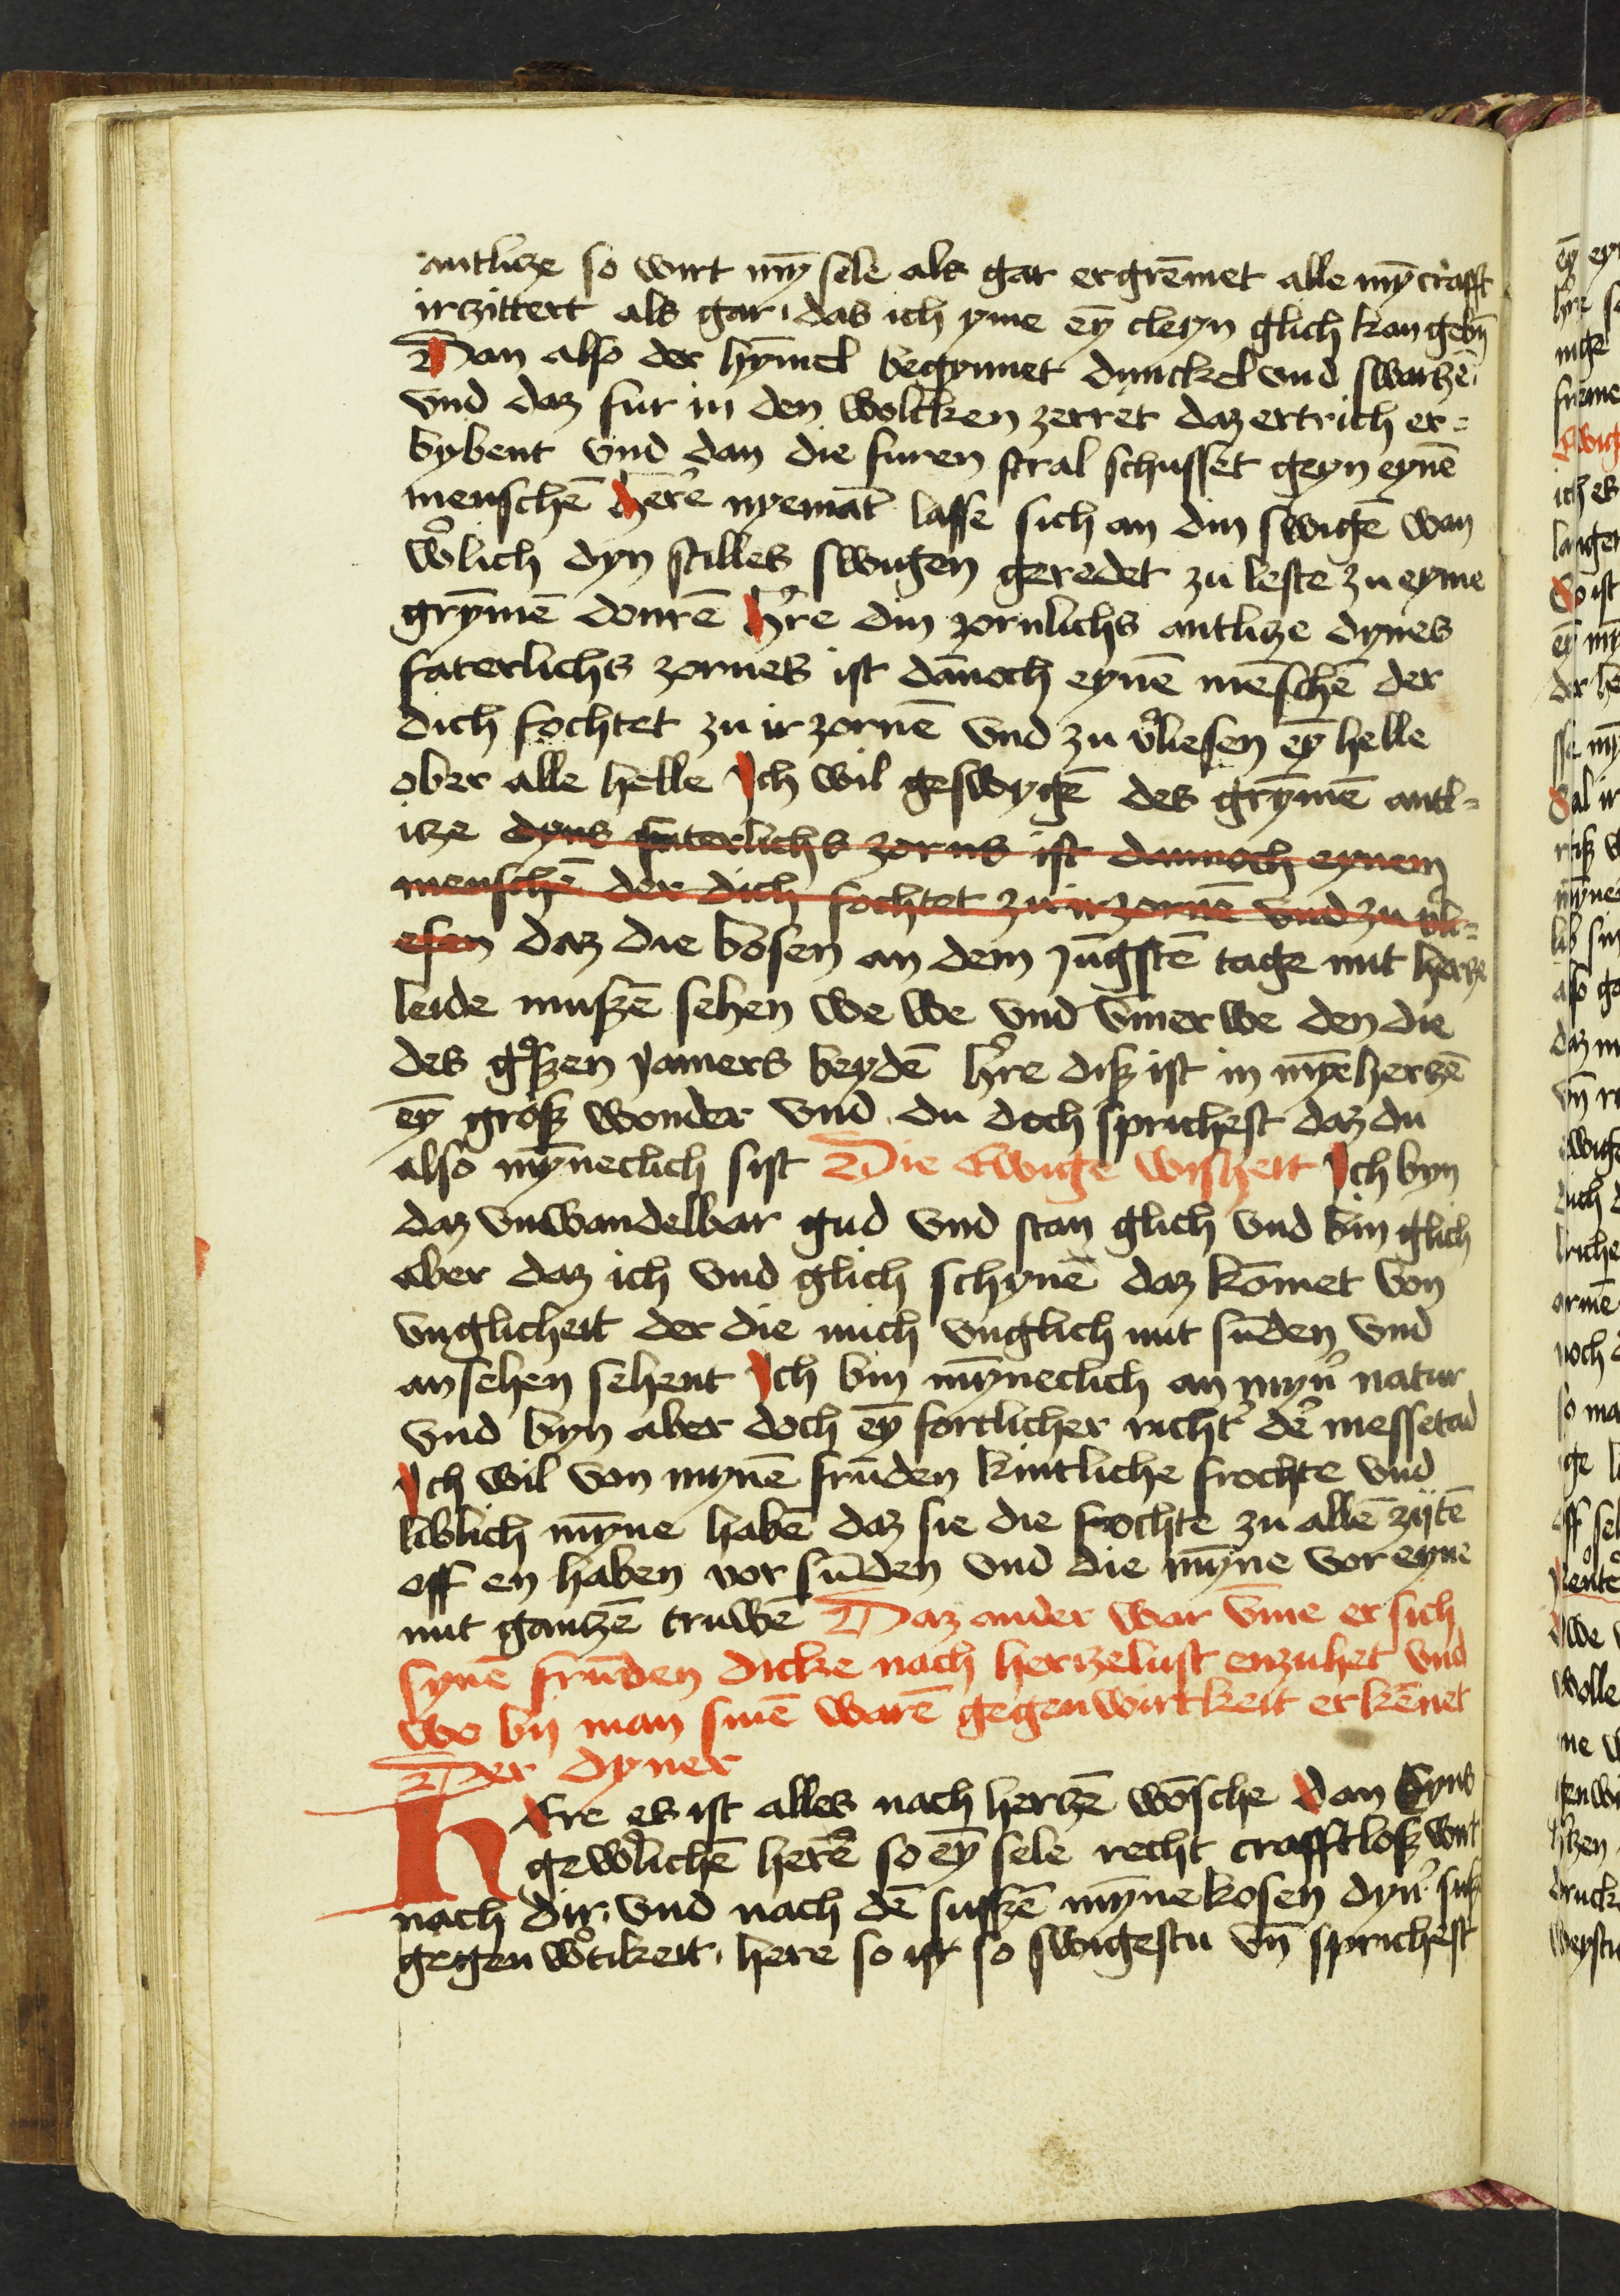 antlitze so wirt mȳ sele als gar ergrēmet alle mȳ crafft
irzittert als gar · das ich yme eȳ cleyn glich kan gebn̄
Dan also der hȳmel begynnet dunckel vnd swartzē ·
vnd daz fur in den wolcken zerret daz ertrich er=
bybent vnd dan die furen stral schusset geyn eynē
menschē here nyemāt lasse sich an din swigē wan
w̉lich dyn stilles swigen geredet zu leste zu eyme
grȳmē donrē h̉re din zornlichs antlitze dynes
faterlichs zornes ist dānoch eynē mēschē der
dich fochtet zu ir zornē vnd zu v̉liesen eȳ helle
ober alle helle Ich wil geswygē des grȳmē antl=
itze dyns faterlichs zorns ist dannoch eynem
menschē der dich fochtet zu irzornē vnd zu v̉li=
esen daz die bosen an dem jūgstē tage mit hertze
leide mußē sehen we we vnd v̄mer we den die
des g̊ßen jamers beydē h̉re diß ist in mȳē hertzē
eȳ groß wonder vnd du doch sprichest daz du
also mȳneclich sist Die Ewige wißheit Ich byn
daz vnwandelbar gud vnd stan glich vnd bin glich
aber daz ich vnd glich schynē daz kōmet von
vnglicheit der die mich vnglich mit sūden vnd
an sehen sehent Ich bin mȳneclich an myn̉ natur
vnd byn aber doch eȳ fortlicher richt̉ dẻ messetad
Ich wil von mynē frūden kintliche frochte vnd
liblich mȳne habē daz sie die frochte zu allē zijtē
off en haben vor sūden vnd die mȳne vor eyne
mit gantzē truwē Daz ander war v̄me er sich
synē frūden dicke nach hertzelust enzuhet vnd
we bij man sinē warē gegenwirtkeit erkēnet
Der dyner
HEre es ist alles nach hertzē wōsche dan Eyns
gew̉lichē here so eȳ sele recht crafftloß wirt
nach dir · vnd nach dē sußē mȳnekosen dyn̉ suß
gegenw̉tikeit · here so ist so swigestu vn̄ sprichest